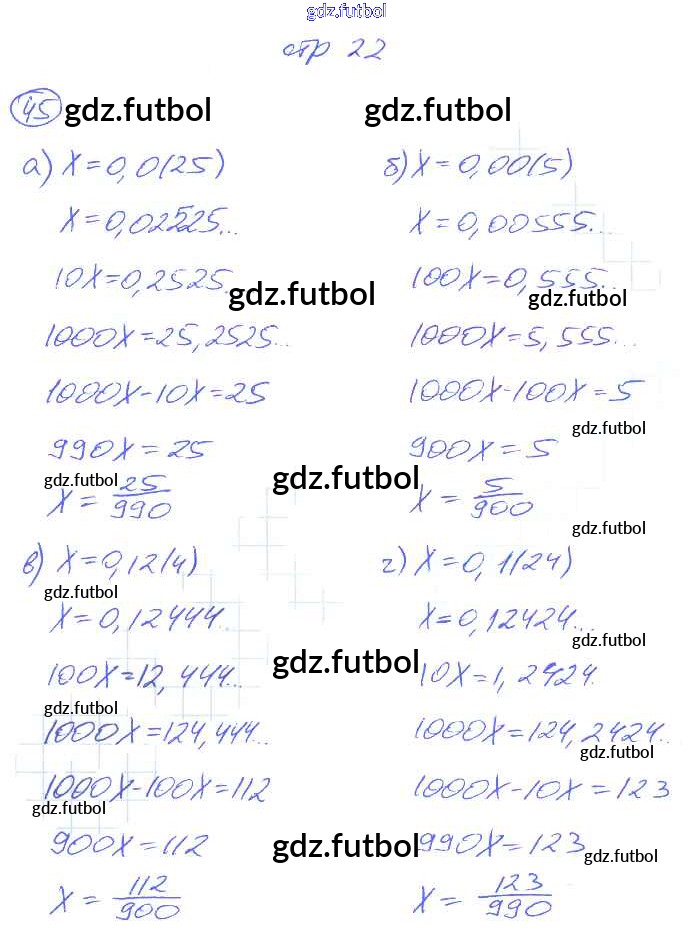 gdz.futbol
стр 22
45 gdz.futbol gdz.futbol
а) x=0,0(25)
x=0,02525...
10x=0,2525
gdz.futbol
1000x=25,2525...
1000x-10x=25
990x=25
gdz.futbol
x=25/990
gdz.futbol
б) x=0,00(5)
x=0,00555...
100x=0,555...
gdz.futbol
1000x=5,555...
1000x-100x=5
gdz.futbol
900x=5
x=5/900
gdz.futbol
в) x=0,12(4)
gdz.futbol
x=0,12444...
gdz.futbol
100x=12,444...
gdz.futbol
1000x=124,444...
1000x-100x=112
gdz.futbol
900x=112
gdz.futbol
x=112/900
г) x=0,1(24)
x=0,12424...
gdz.futbol
10x=1,2424.
1000x=124,2424...
gdz.futbol
1000x-10x=123
990x=123
gdz.futbol
x=123/990